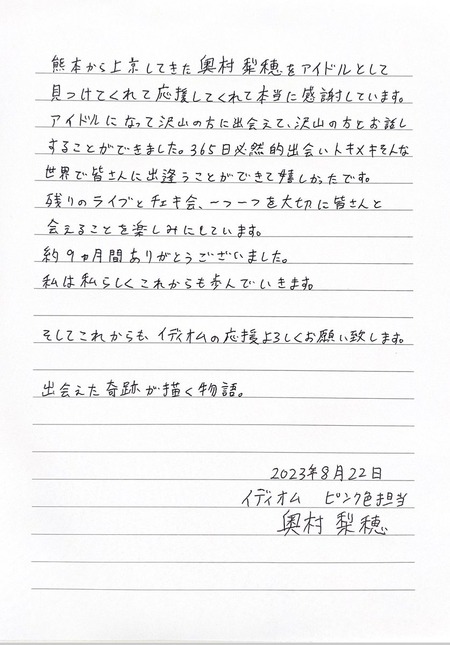 熊本から上京してきた奥村梨穂をアイドルとして
見つけてくれて応援してくれて本当に感謝しています。
アイドルになって沢山の方に出会えて、沢山の方とお話し
することができました。365日必然的出会いトキメキそんな
世界で皆さんに出逢うことができて嬉しかったです。
残りのライブとチェキ会、一つ一つを大切に皆さんと
会えることを楽しみにしています。
約9ヵ月間ありがとうございました。
私は私らしくこれからも歩んでいきます。
そしてこれからも、イディオムの応援よろしくお願い致します。
出会えた奇跡が描く物語。
2023年8月22日
イディオム ピンク色担当
奥村 梨穂